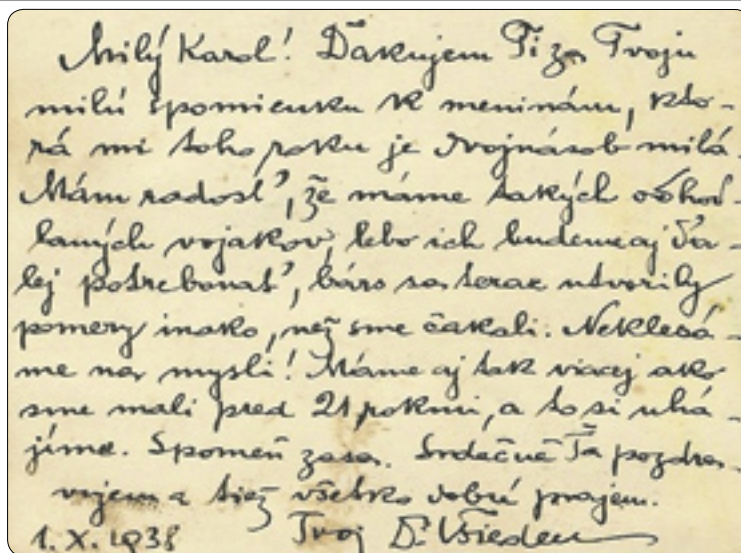 Milý Karol! Ďakujem Ti za Tvoju
milú spomienku k meninám, kto-
rá mi toho roku je dvojnásob milá.
Mám radosť, že máme takých odhod-
laných vojakov, lebo ich budeme aj ďa-
lej potrebovať, bárs sa teraz utvorily
pomery inako, než sme čakali. Neklesá-
me na mysli! Máme aj tak viacej ako
sme mali pred 21 rokmi, a to si uhá-
jíme. Spomeň zasa. Srdečne Ťa pozdra-
vujem a tiež všetko dobré prajem.
1. X. 1938 Tvoj